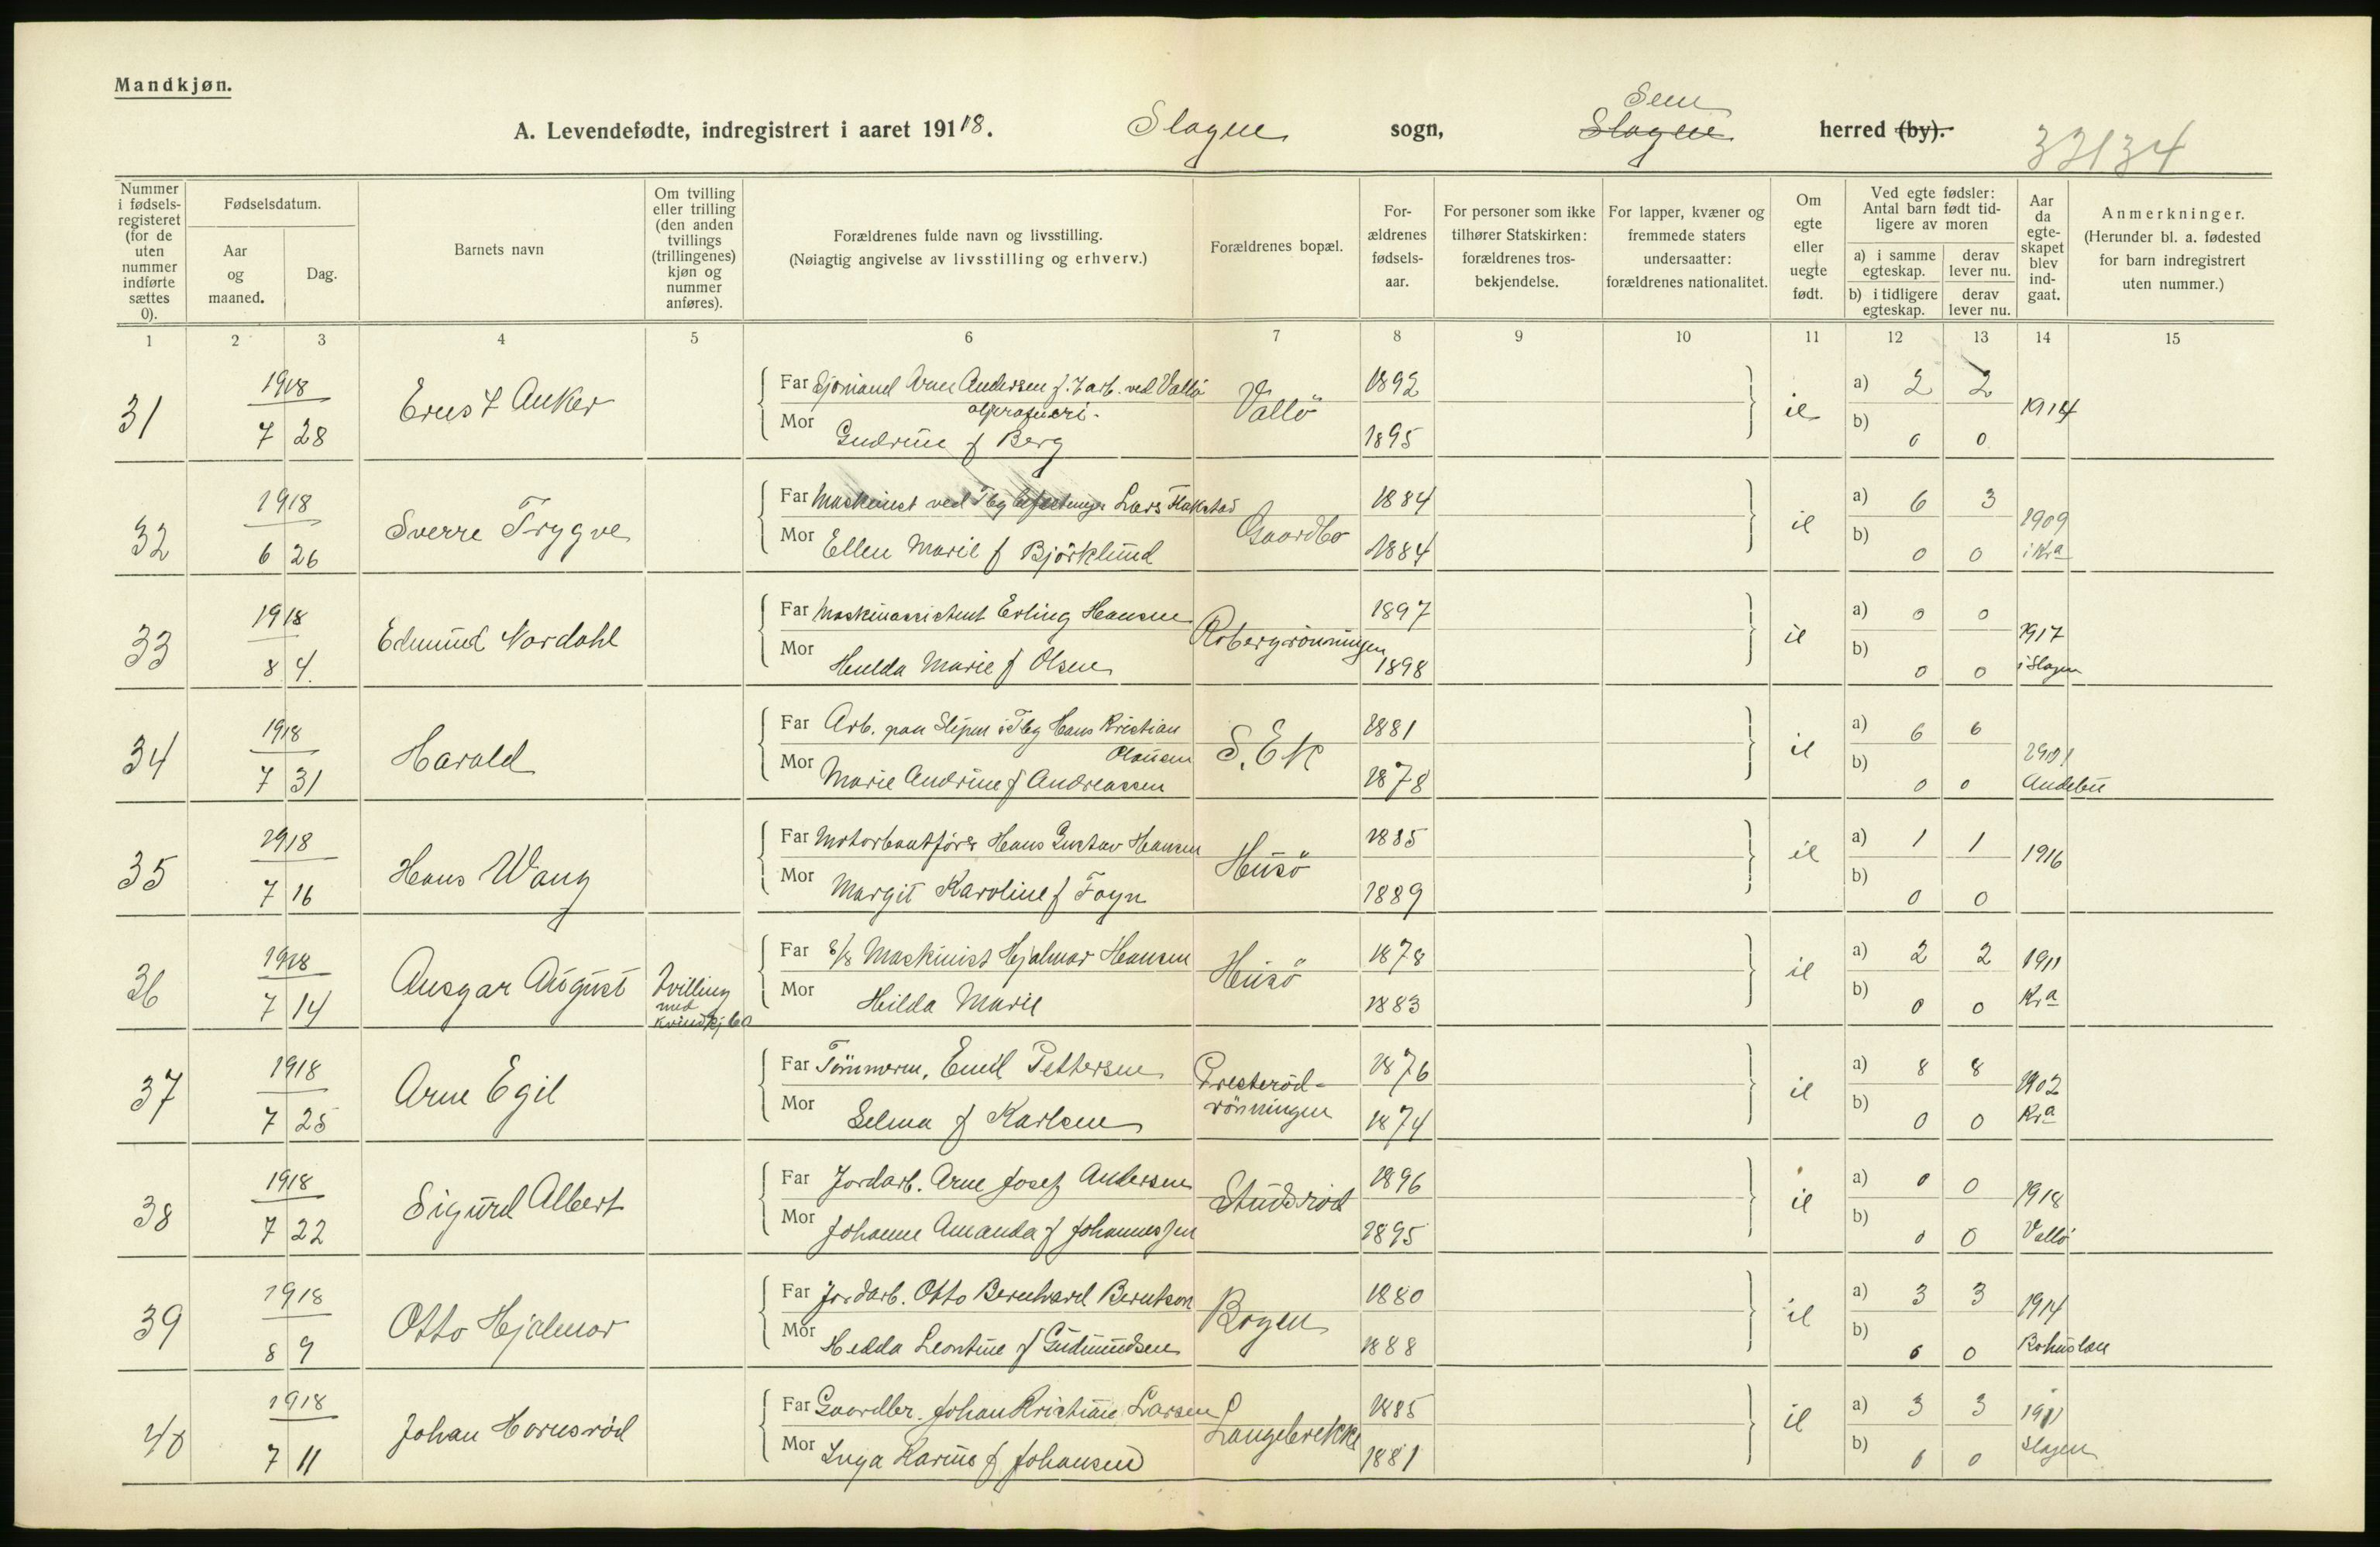 Mandkjøn.
A. Levendefødte, indregistrert i aaret 19118. Slagen sogn, Sem Slagen herred (by).
33134
Nummer i fødselsregisteret (for de uten nummer indførte sættes 0).
Fødselsdatum.
Aar og maaned.
Dag.
Barnets navn
Om tvilling eller trilling (den anden tvillings (trillingenes) kjøn og nummer anføres).
Forældrenes fulde navn og livsstilling.
(Nøiagtig angivelse av livsstilling og erhverv.)
Forældrenes bopæl.
Forældrenes fødselsaar.
For personer som ikke tilhører Statskirken: forældrenes trosbekjendelse.
For lapper, kvæner og fremmede staters undersaatter: forældrenes nationalitet.
Om egte eller uegte født.
Ved egte fødsler: Antal barn født tidligere av moren
a) i samme egteskap. derav lever nu.
b) i tidligere egteskap. derav lever nu.
Aar da egteskapet blev indgaat.
Anmerkninger.
(Herunder bl. a. fødested for barn indregistrert uten nummer.)
1 2 3 4 5 6 7 8 9 10 11 12 13 14 15
31 1918 7 28 Ernst Anker
Far Sjömand Arne Andersen f. T arb. ved Vallö
Mor Gudrun f Berg
Vallö 1892 1895 a) 2 2 b) 0 0 1914
32 1918 6 26 Sverre Trygve
Far Maskinist ved Tbg Lars
Mor Ellen Marie f Björklund
Gaardbo 1884 1884 a) 6 3 b) 0 0 1909 i Kra
33 1918 8 4 Edmund Nordahl
Far Maskinassistent Erling Hansen
Mor Hulda Marie f Olsen
1897 1898 a) 0 0 b) 0 0 1917 i Slagen
34 1918 7 31 Harald
Far Arb. paa Slipen i Tbg Hans Kristian Olausen
Mor Marie Andrine f Andreassen
S. Ek 1881 1878 a) 6 6 b) 0 0 1901 Andebu
35 1918 7 16 Hans Wang
Far Motorbaatförer Hans Gustav Hansen
Mor Margit Karoline f Foyn
Husö 1885 1889 a) 1 1 b) 0 0 1916
36 1918 7 14 Ansgar August Tvilling med kvindkj 60
Far S/S Maskinist Hjalmar Hansen
Mor Hilda Marie
Husö 1878 1883 a) 2 2 b) 0 0 1911 Kra
37 1918 7 25 Arne Egil
Far Tömmerm. Emil Pettersen
Mor Selma f Karlsen
Presterödrönningen 1876 1874 a) 8 8 b) 0 0 1902 Kra
38 1918 7 22 Sigurd Albert
Far Jordarb. Arne Josef Andersen
Mor Johanne Amanda f Johannessen
Studsröd 1896 1895 a) 0 0 b) 0 0 1918 Vallö
39 1918 8 9 Otto Hjalmar
Far Jordarb. Otto Bernhard Berntson
Mor Hedda Leontine f Gudmundsen
Bogen 1880 1888 a) 3 3 b) 0 0 1914 Bohuslæn
40 1918 7 11 Johan Hornsröd
Far Gaardbr. Johan Kristian Larsen
Mor Inga Karine f Johansen
Langebrekke 1885 1881 a) 3 3 b) 0 0 1911 Slagen